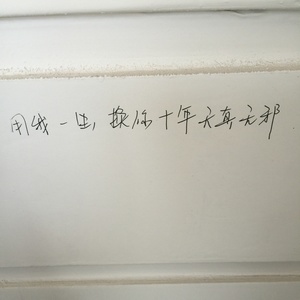 用我一生,换你十年天真无邪